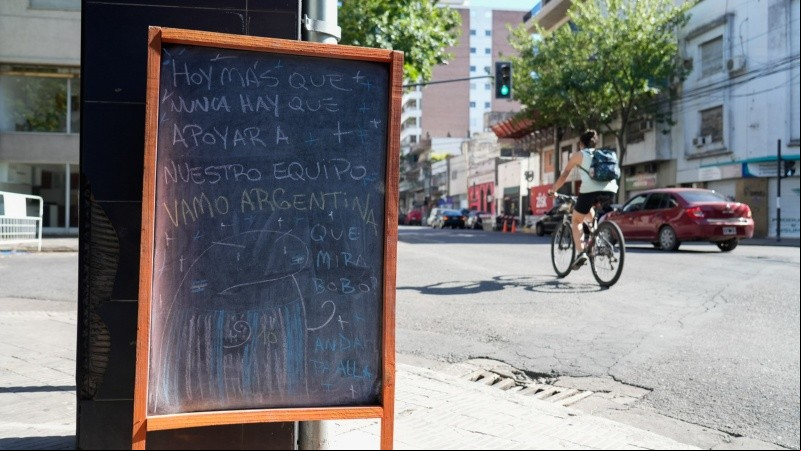 HOY MÁS QUE
NUNCA HAY QUE
APOYAR A
NUESTRO EQUIPO
VAMO ARGENTINA
QUE
MIRA
BOBO?
ANDA
P'ALLA
10